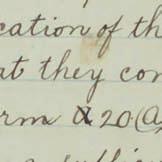 cation of th
at they con
rm & 20 (a